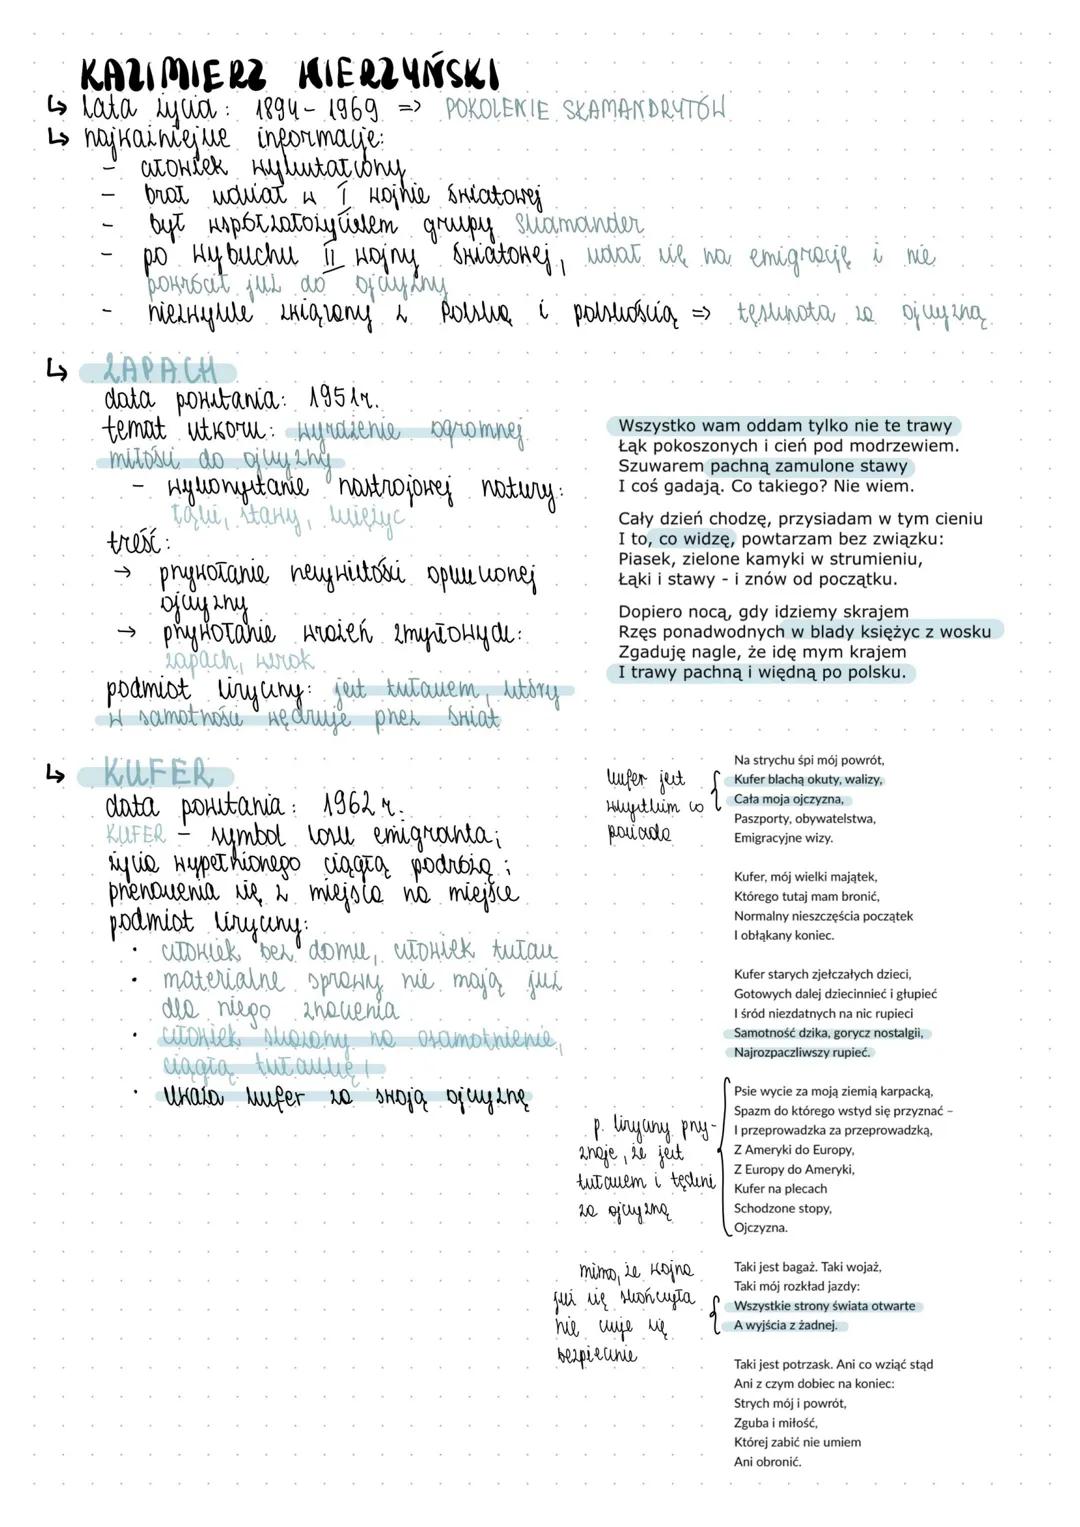 KAZIMIERZ WIERZYŃSKI
↳ lata życia: 1894-1969 => POKOLENIE SKAMANDRYTÓW
↳ najważniejsze informacje:
- człowiek wykształcony
- brał udział w I wojnie światowej
- był współzałożycielem grupy Skamander
- po wybuchu II wojny światowej, udał się na emigrację i nie
powrócił już do ojczyzny
- niezwykle związany z Polską i polskością => tęsknota za ojczyzną
↳ ZAPACH
data powstania: 1951r.
temat utworu: wyrażenie ogromnej
miłości do ojczyzny
- wykorzystanie nastrojowej natury:
łąki, stawy, księżyc
treść:
→ przywołanie rzeczywistości opuszczonej
ojczyzny
→ przywołanie wrażeń zmysłowych:
zapach, wzrok
podmiot liryczny: jest tułaczem, który
w samotności wędruje przez świat
Wszystko wam oddam tylko nie te trawy
Łąk pokoszonych i cień pod modrzewiem.
Szuwarem pachną zamulone stawy
I coś gadają. Co takiego? Nie wiem.
Cały dzień chodzę, przysiadam w tym cieniu
I to, co widzę, powtarzam bez związku:
Piasek, zielone kamyki w strumieniu,
Łąki i stawy - i znów od początku.
Dopiero nocą, gdy idziemy skrajem
Rzęs ponadwodnych w blady księżyc z wosku
Zgaduję nagle, że idę mym krajem
I trawy pachną i więdną po polsku.
↳ KUFER
data powstania: 1962 r.
KUFER - symbol losu emigranta;
życia wypełnionego ciągłą podróżą;
przenoszenia się z miejsca na miejsce
podmiot liryczny:
· człowiek bez domu, człowiek tułacz
· materialne sprawy nie mają już
dla niego znaczenia
· człowiek skazany na osamotnienie,
ciągłą tułaczkę!
· uważa kufer za swoją ojczyznę
kufer jest
wszystkim co
posiada
Na strychu śpi mój powrót,
Kufer blachą okuty, walizy,
Cała moja ojczyzna,
Paszporty, obywatelstwa,
Emigracyjne wizy.
Kufer, mój wielki majątek,
Którego tutaj mam bronić,
Normalny nieszczęścia początek
I obłąkany koniec.
Kufer starych zjełczałych dzieci,
Gotowych dalej dziecinnieć i głupieć
I śród niezdatnych na nic rupieci
Samotność dzika, gorycz nostalgii,
Najrozpaczliwszy rupieć.
p. liryczny przy-
znaje, że jest
tułaczem i tęskni
za ojczyzną
Psie wycie za moją ziemią karpacką,
Spazm do którego wstyd się przyznać –
I przeprowadzka za przeprowadzką,
Z Ameryki do Europy,
Z Europy do Ameryki,
Kufer na plecach
Schodzone stopy,
Ojczyzna.
mimo, że wojna
już się skończyła
nie czuje się
bezpiecznie
Taki jest bagaż. Taki wojaż,
Taki mój rozkład jazdy:
Wszystkie strony świata otwarte
A wyjścia z żadnej.
Taki jest potrzask. Ani co wziąć stąd
Ani z czym dobiec na koniec:
Strych mój i powrót,
Zguba i miłość,
Której zabić nie umiem
Ani obronić.